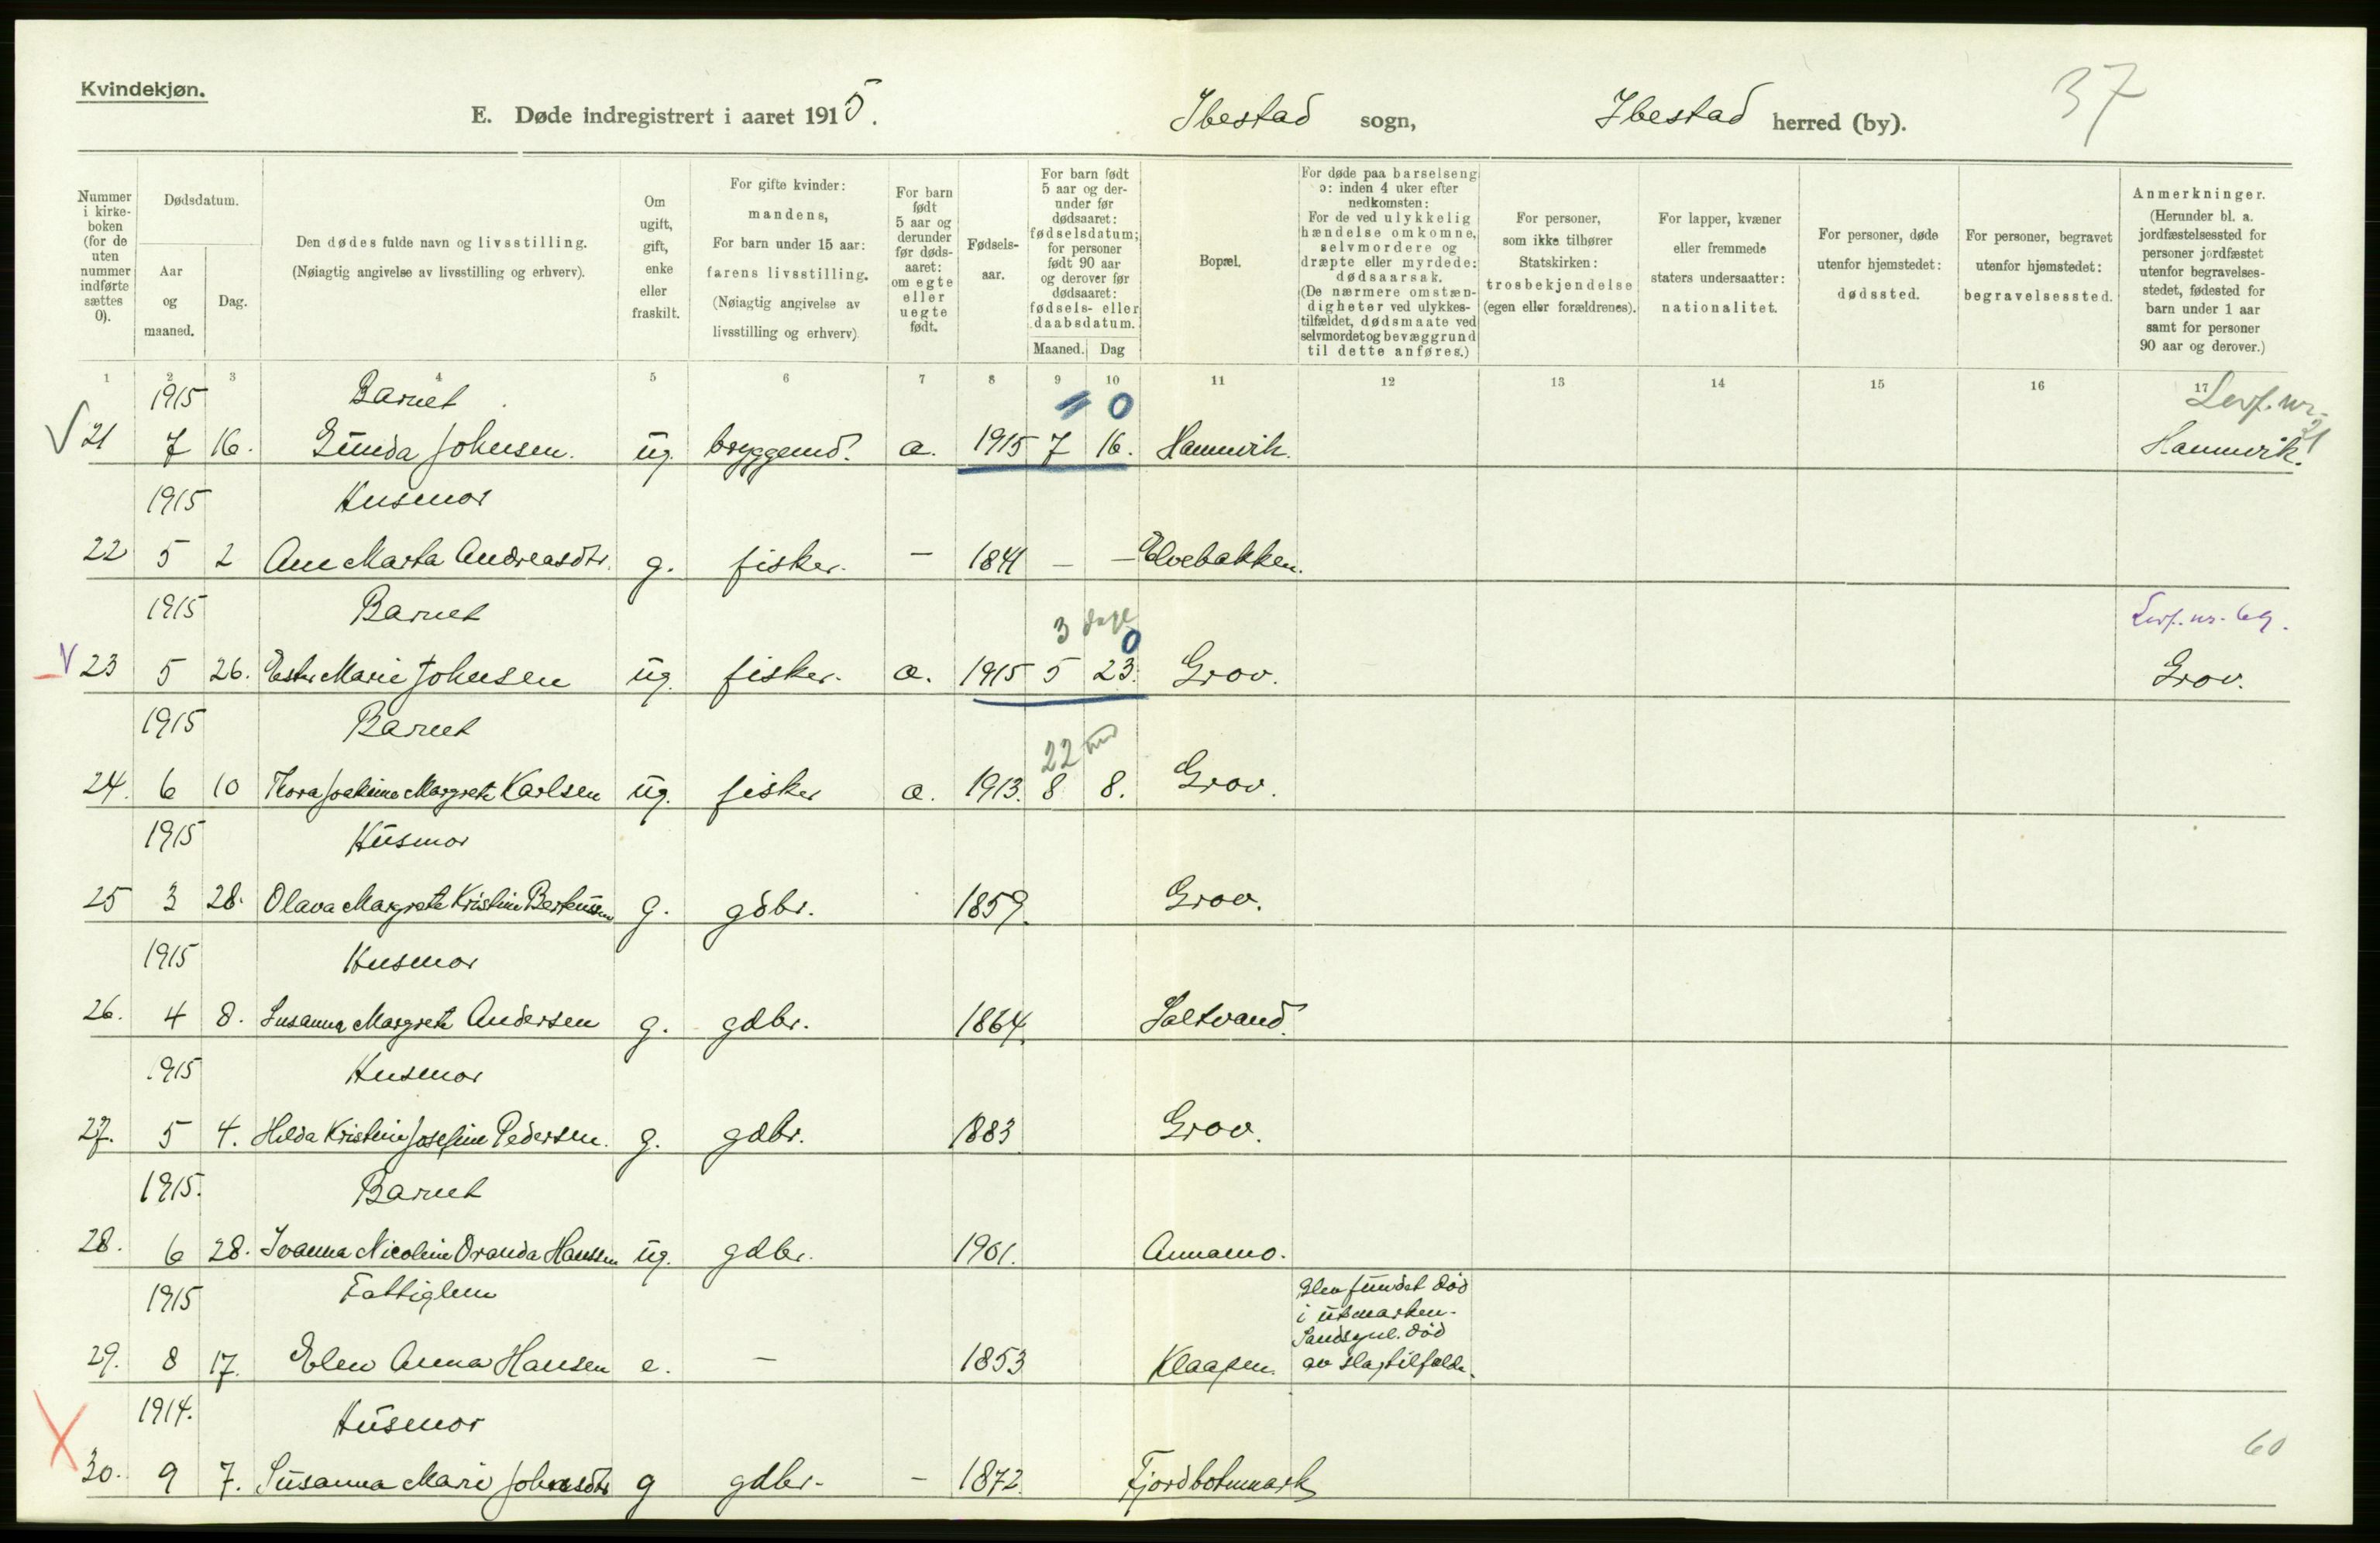 Kvindekjøn.
E. Døde indregistrert i aaret 1915.
Ibestad sogn,
Ibestad herred (by).
37
Nummer i kirke- boken (for de uten nummer indførte sættes 0).
Dødsdatum.
Aar og maaned.
Dag.
Den dødes fulde navn og livsstilling.
(Nøiagtig angivelse av livsstilling og erhverv).
Om ugift, gift, enke eller fraskilt.
For gifte kvinder:
mandens,
For barn under 15 aar:
farens livsstilling.
(Nøiagtig angivelse av
livsstilling og erhverv)
For barn født 5 aar og derunder før døds- aaret: om egte eller uegte født.
Fødsels- aar.
For barn født 5 aar og der- under før dødsaaret: fødselsdatum; for personer født 90 aar og derover før dødsaaret: fødsels- eller daabsdatum.
Maaned. Dag
Bopæl.
For døde paa barselseng ɔ: inden 4 uker efter nedkomsten:
For de ved ulykkelig hændelse omkomne, selvmordere og dræpte eller myrdede: dødsaarsak.
(De nærmere omstæn- digheter ved ulykkes- tilfældet, dødsmaate ved selvmordet og bevæggrund til dette anføres.)
For personer, som ikke tilhører Statskirken: trosbekjendelse (egen eller forældrenes).
For lapper, kvæner eller fremmede staters undersaatter: nationalitet.
For personer, døde utenfor hjemstedet: dødssted.
For personer, begravet utenfor hjemstedet: begravelsessted.
Anmerkninger.
(Herunder bl. a. jordfæstelsessted for personer jordfæstet utenfor begravelses- stedet, fødested for barn under 1 aar samt for personer 90 aar og derover.)
1 2 3 4 5 6 7 8 9 10 11 12 13 14 15 16 17
1915 Barnet 0 Levf. nr. 21
V 21 7 16. Gunda Johnsen. ug. byggemd. a. 1915 7 16. Hamnvik. Hamnvik.
1915 Husmor
22 5 2 Ane Marta Andreasdtr. g. fisker. — 1841 — — Elvebakken.
1915 Barnet 3 dage 0 Levf. nr. 69.
V 23 5 26. Ester Marie Johnsen ug. fisker. a. 1915 5 23. Grov. Grov.
1915 Barnet 22 md
24. 6 10 Thora Joakime Margrete Karlsen ug. fisker a. 1913. 8 8. Grov.
1915 Husmor
25 3 28. Olava Margrete Kristine Berteussen g. gdbr. 1859. Grov.
1915 Husmor
26. 4 8. Susanna Margrete Andersen g. gdbr. 1864. Saltvand.
1915 Husmor
27. 5 4. Hilda Kristine Josefine Pedersen. g. gdbr. 1883 Grov.
1915. Barnet
28. 6 28. Ivanna Nicoline Oranda Hanssen ug. gdbr. 1901. Annamo.
1915 Fattiglem Blev fundet død
i utmarken.
Sandsynl. død
29. 8 17. Elen Anna Hansen e. — 1853 Klaapen. av slagtilfælde.
1914. Husmor
60
X 30. 9 7. Susanna Marie Johnsdtr g gdbr. — 1872. Fjordbotnmark